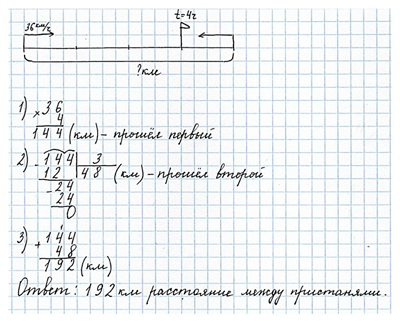 t=4ч
36 км/ч
? км
1) × 36
4
144 (км) - прошёл первый
2) - 144 | 3
12 | 48 (км) - прошёл второй
- 24
24
0
3) + 144
48
192 (км)
Ответ: 192 км расстояние между пристанями.